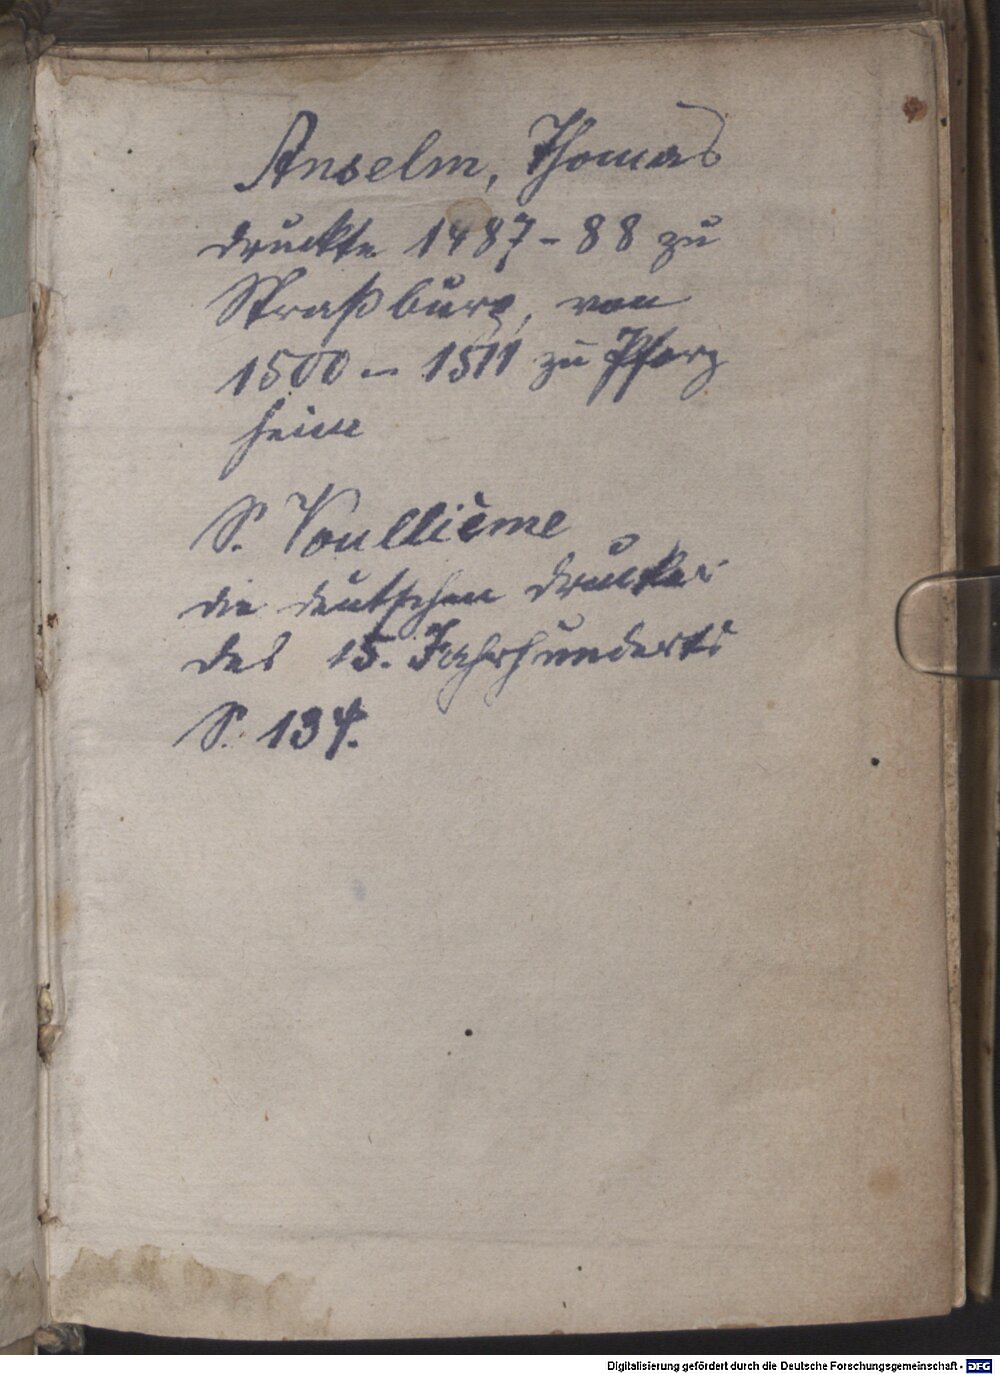 Anselm, Thomas
druckte 1487-88 zu
Straßburg, von
1500 - 1511 zu Pforz
heim
S. Voullième
die deutschen Drucker
des 15. Jahrhunderts
S. 134.
Digitalisierung gefördert durch die Deutsche Forschungsgemeinschaft - DFG